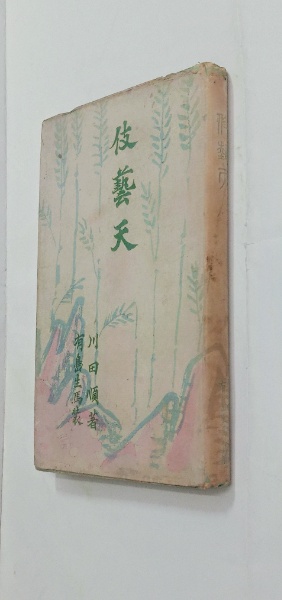 伎藝天
川田順著
有島生馬装
伎藝天